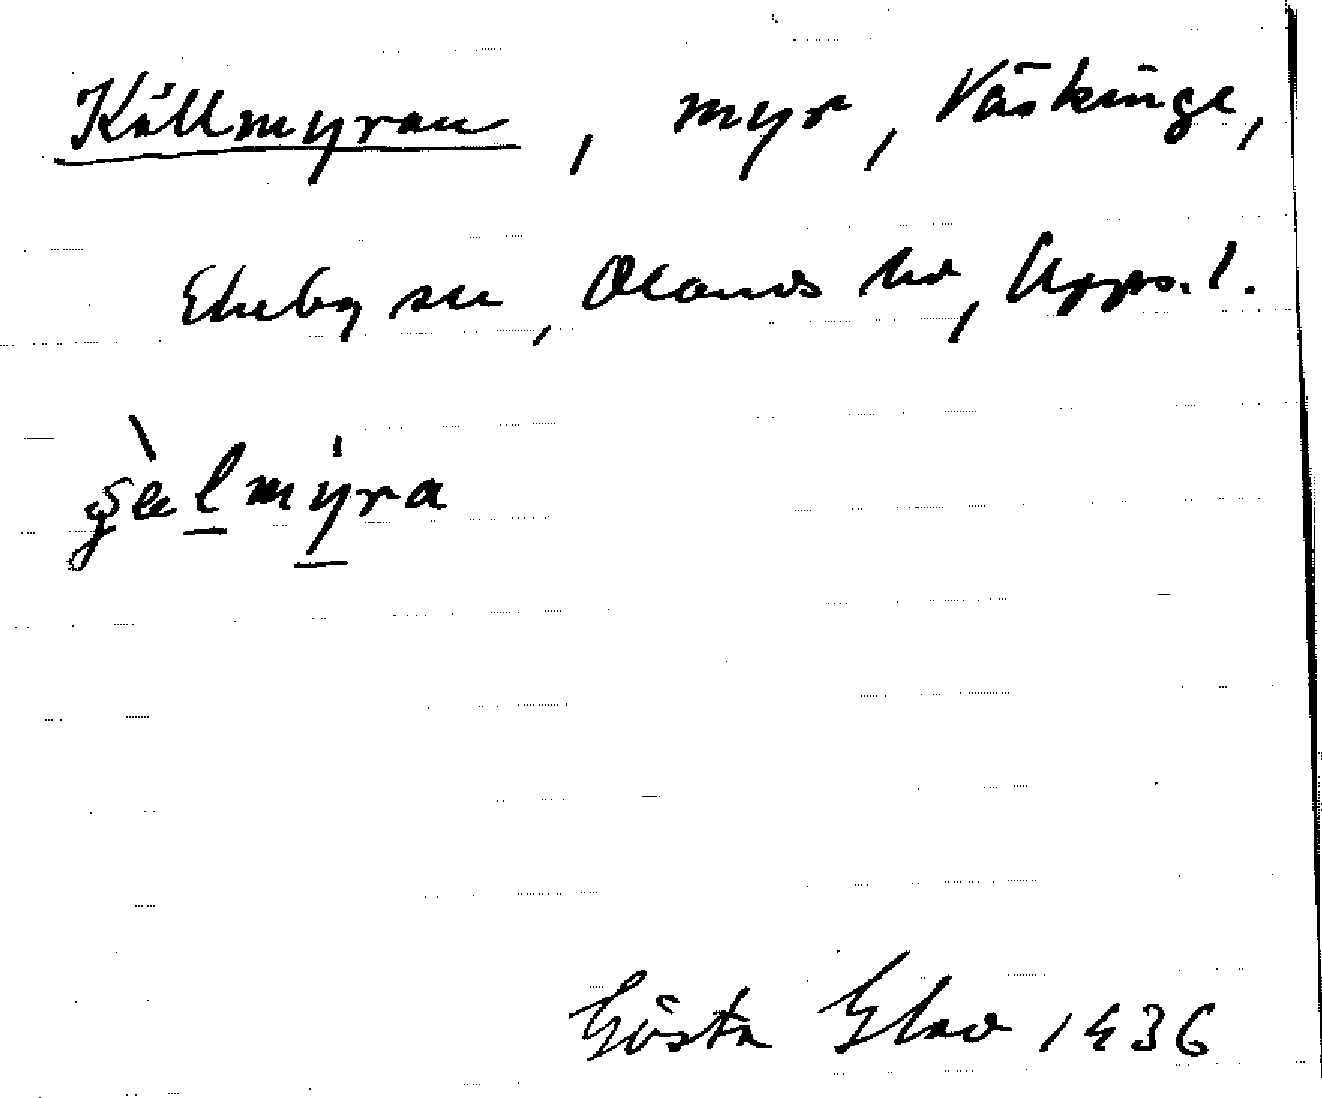 Källmyran, myr, Väskinge,
Ekeby sn, Olands hd, Upps. l.
Gösta Elav 1936